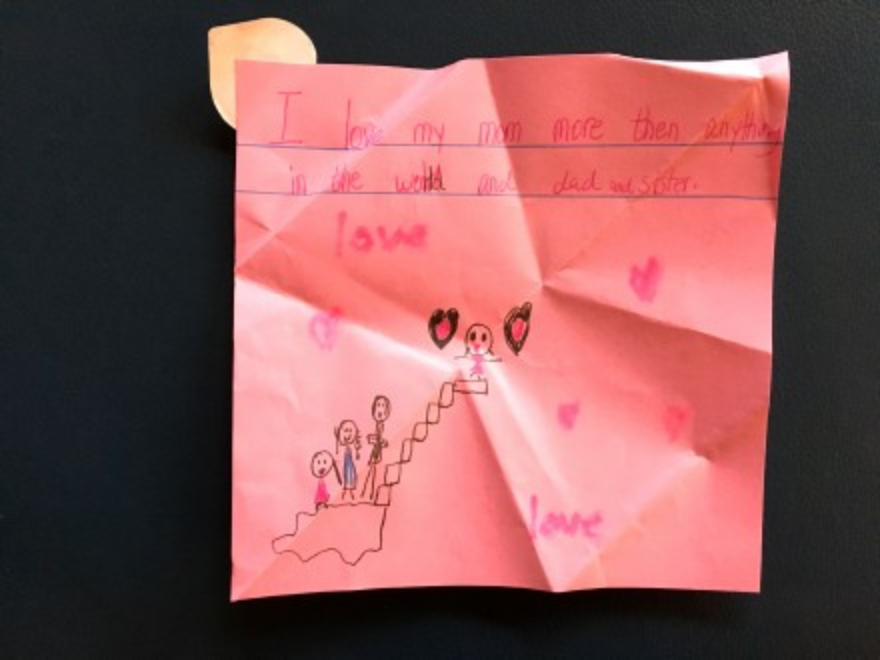 I love my mom more then anything
in the world and dad and sister.
love
love